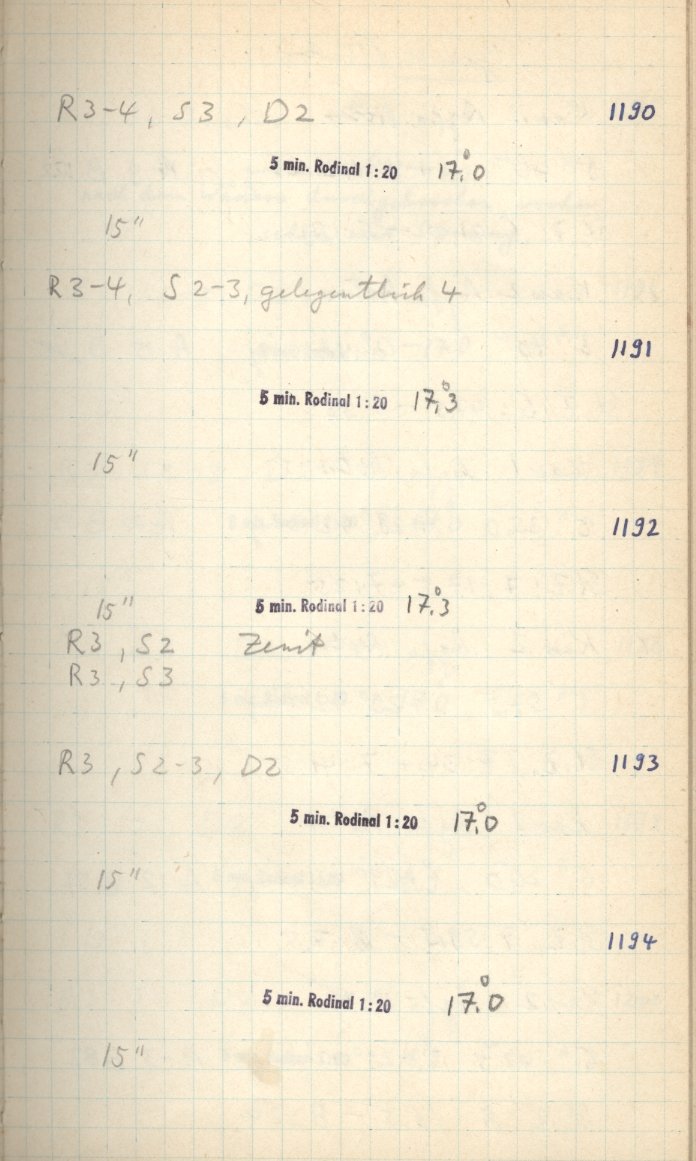 R3-4, S3, D2 1190
5 min. Rodinal 1:20 17.°0
15"
R3-4, S2-3, gelegentlich 4
1191
5 min. Rodinal 1:20 17.°3
15"
1192
15" 5 min. Rodinal 1:20 17.°3
R3, S2 Zenit
R3, S3
R3, S2-3, D2 1193
5 min. Rodinal 1:20 17.°0
15"
1194
5 min. Rodinal 1:20 17.°0
15"